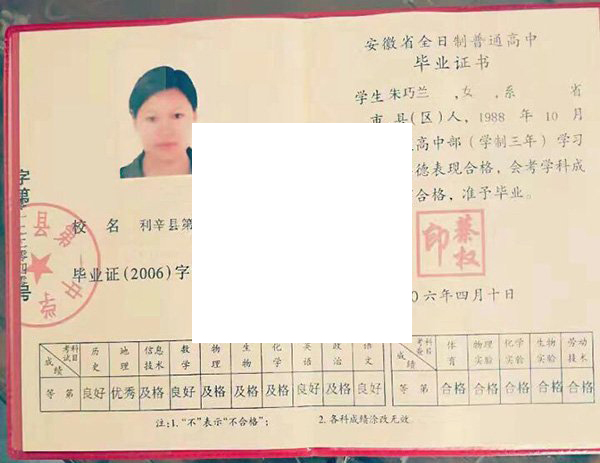 安徽省全日制普通高中
毕业证书
学生 朱巧兰 ,女 ,系 省
市 县(区)人, 1988 年 10 月
高中部(学制三年)学习
德表现合格, 会考学科成
合格, 准予毕业。
校 名 利辛县第
毕业证(2006)字
蔡权印
6年四月十日
考试科目 历史 地理 信息技术 数学 物理 生物 化学 英语 政治 语文
成绩
等 第 良好 优秀 及格 良好 及格 及格 及格 良好 及格 良好
考查科目 体育 物理实验 化学实验 生物实验 劳动技术
成绩
等 第 合格 合格 合格 合格 合格
注:1. “不”表示“不合格”; 2. 各科成绩涂改无效。